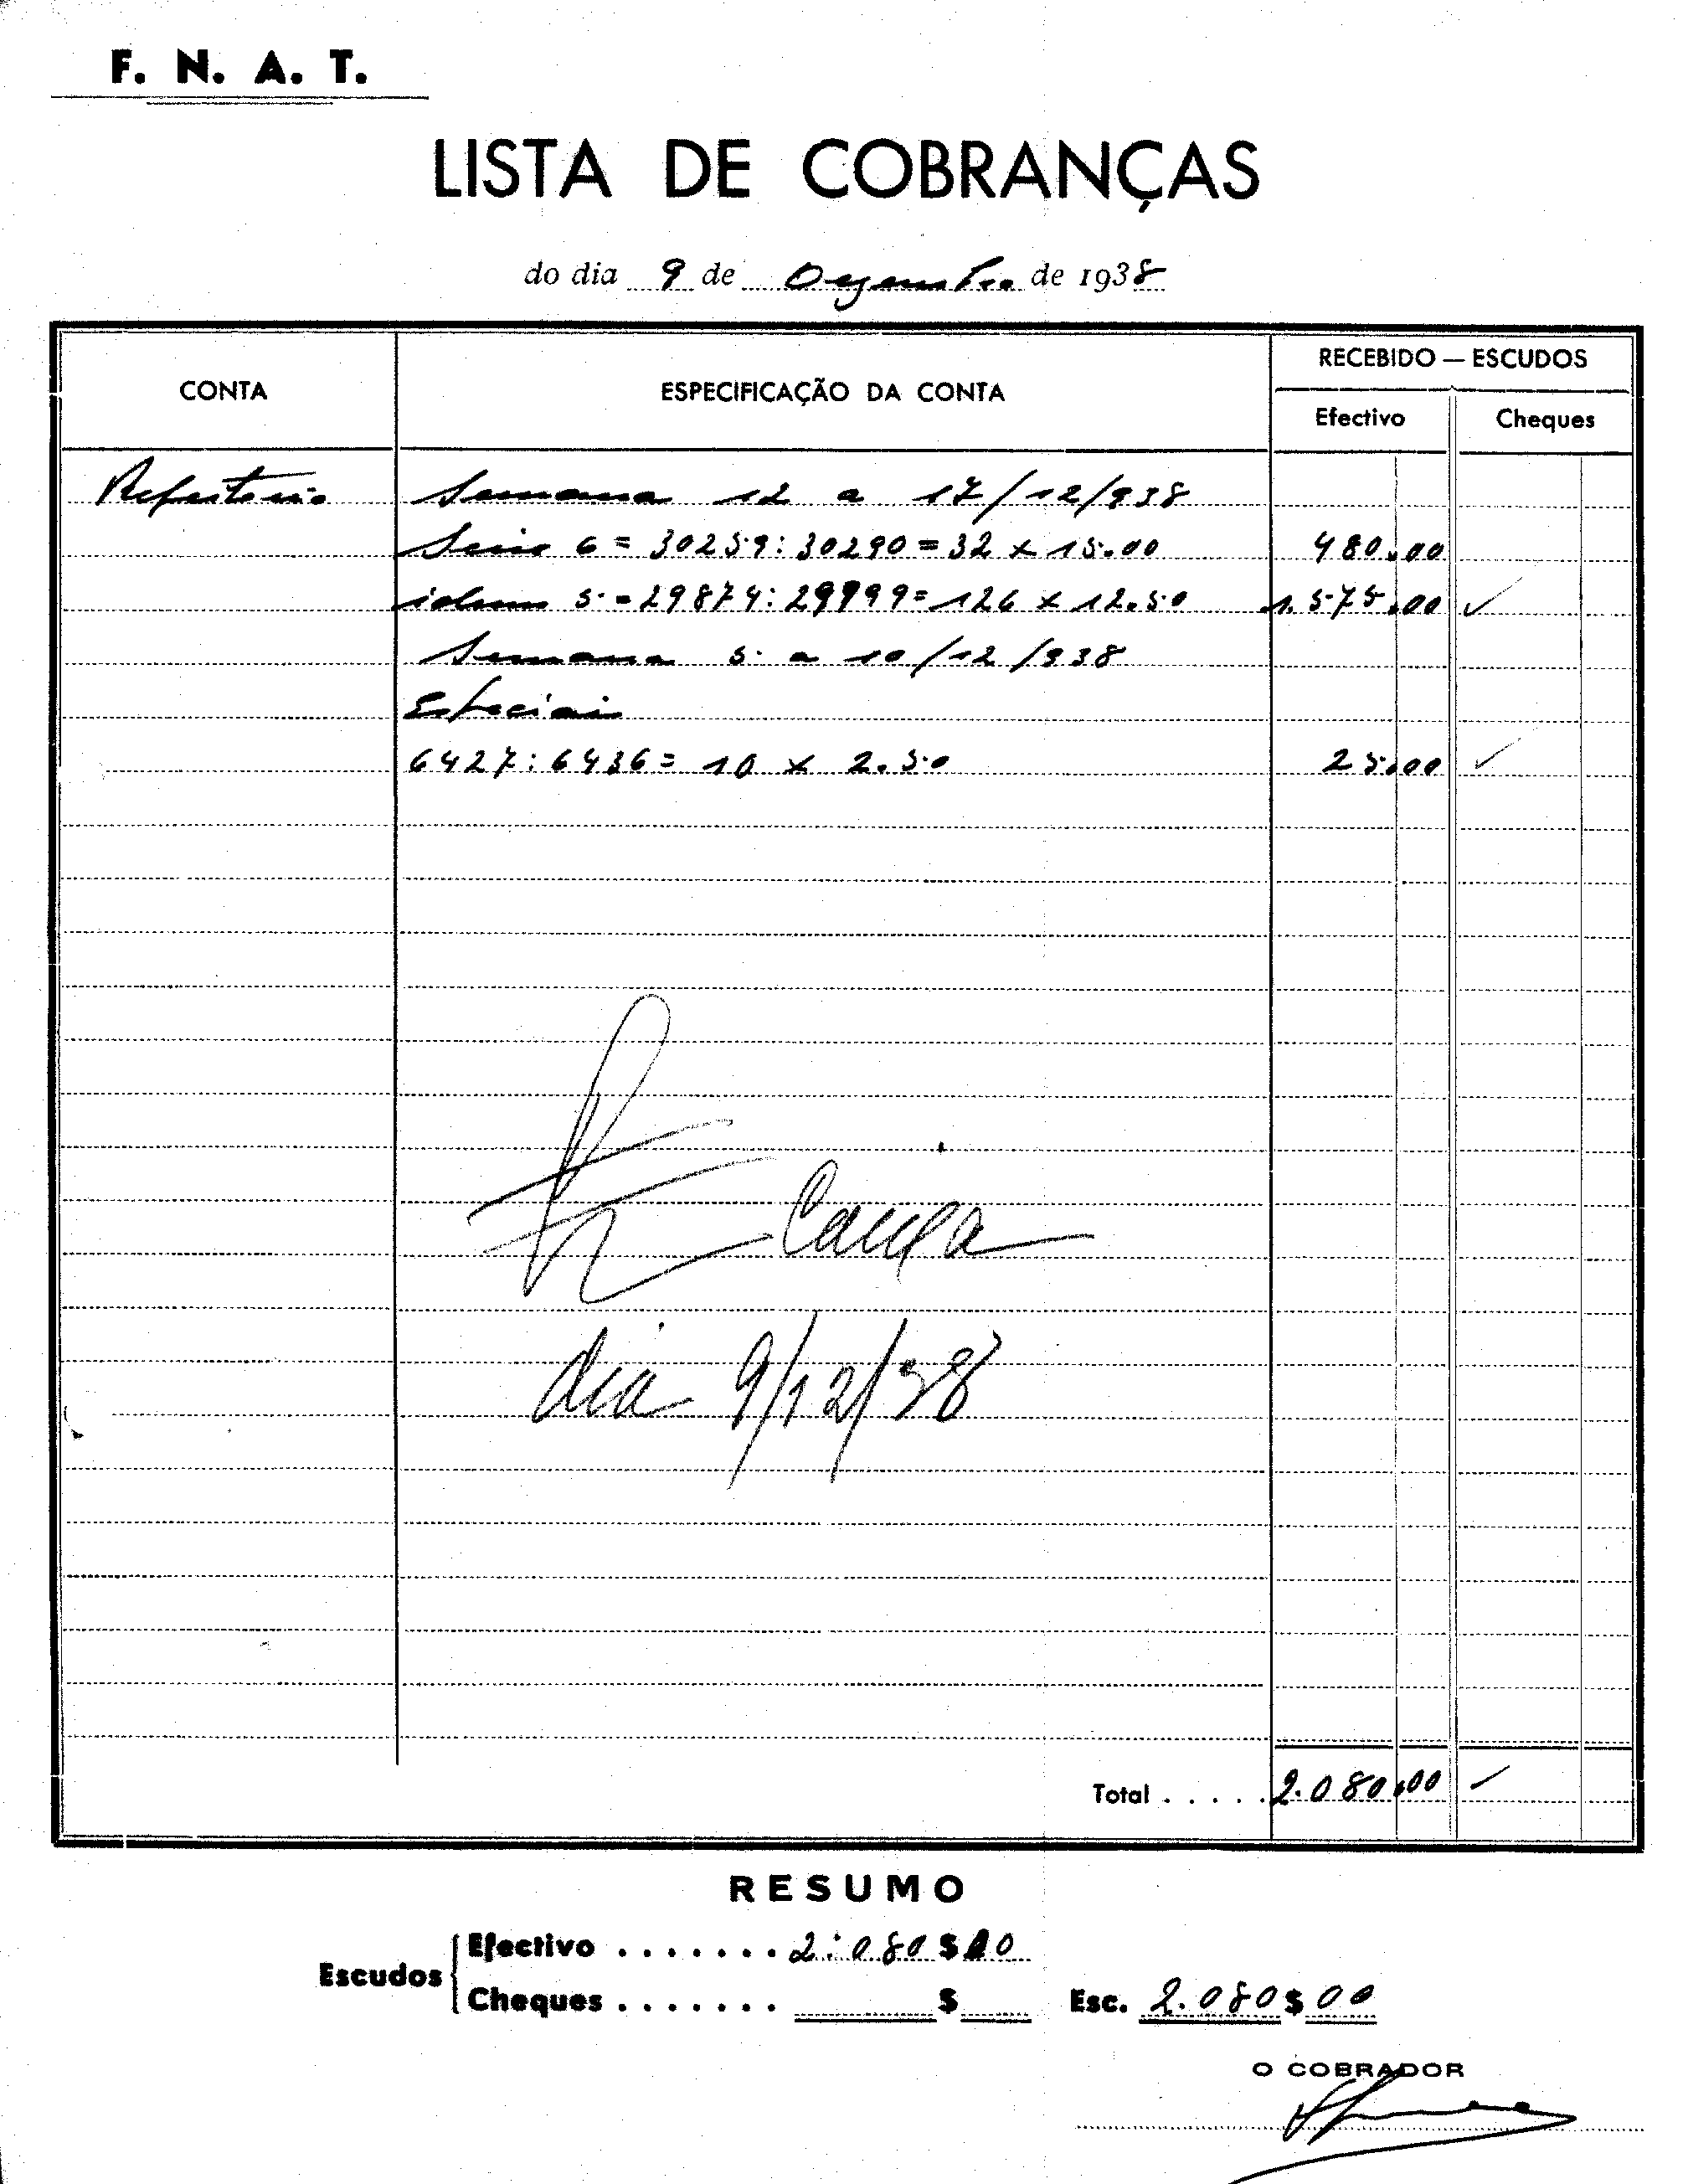 F. N. A. T.
LISTA DE COBRANÇAS
do dia 9 de Dezembro de 1938
CONTA
ESPECIFICAÇÃO DA CONTA
RECEBIDO — ESCUDOS
Efectivo Cheques
Refeitorio Semana 12 a 17/12/938
Serie 6 = 30259: 30290 = 32 x 15.00 480.00
idem 5 = 29874: 29999 = 126 x 12.50 1.575.00 ✓
Semana 5 a 10/12/938
Especiai
6427: 6436 = 10 x 2.50 25.00 ✓
Caixa
dia 9/12/38
Total . . . . . 2.080.00 ✓
RESUMO
Escudos
Efectivo . . . . . . . 2.080$00
Cheques . . . . . . . $ Esc. 2.080$00
O COBRADOR